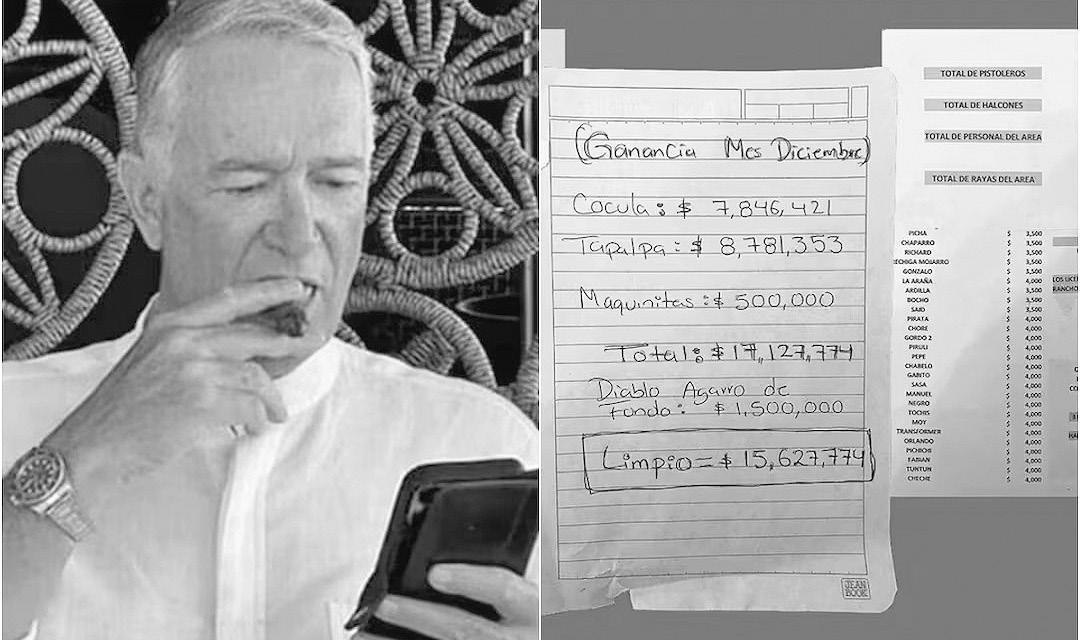 (Ganancia Mes Diciembre)
Cocula: $ 7,846,421
Tapalpa: $ 8,781,353
Maquinitas: $ 500,000
Total: $ 17,127,774
Diablo Agarro de
fondo: $ 1,500,000
Limpio = $ 15,627,774
JEAN
BOOK
TOTAL DE PISTOLEROS
TOTAL DE HALCONES
TOTAL DE PERSONAL DEL AREA
TOTAL DE RAYAS DEL AREA
PICHA $ 3,500
CHAPARRO $ 3,500
RICHARD $ 3,500
ECHIGA MOJARRO $ 3,500
GONZALO $ 3,500
LA ARAÑA $ 4,000
ARDILLA $ 3,500
BOCHO $ 3,500
SAID $ 3,500
PIRATA $ 4,000
CHORE $ 4,000
GORDO 2 $ 4,000
PIRULI $ 4,000
PEPE $ 4,000
CHABELO $ 4,000
GABITO $ 4,000
SASA $ 4,000
MANUEL $ 4,000
NEGRO $ 4,000
TOCHIS $ 4,000
MOY $ 4,000
TRANSFORMER $ 4,000
ORLANDO $ 4,000
PICHIOS $ 4,000
FABIAN $ 4,000
TUNTUN $ 4,000
CHECHE $ 4,000
LOS LICE
RANCHO